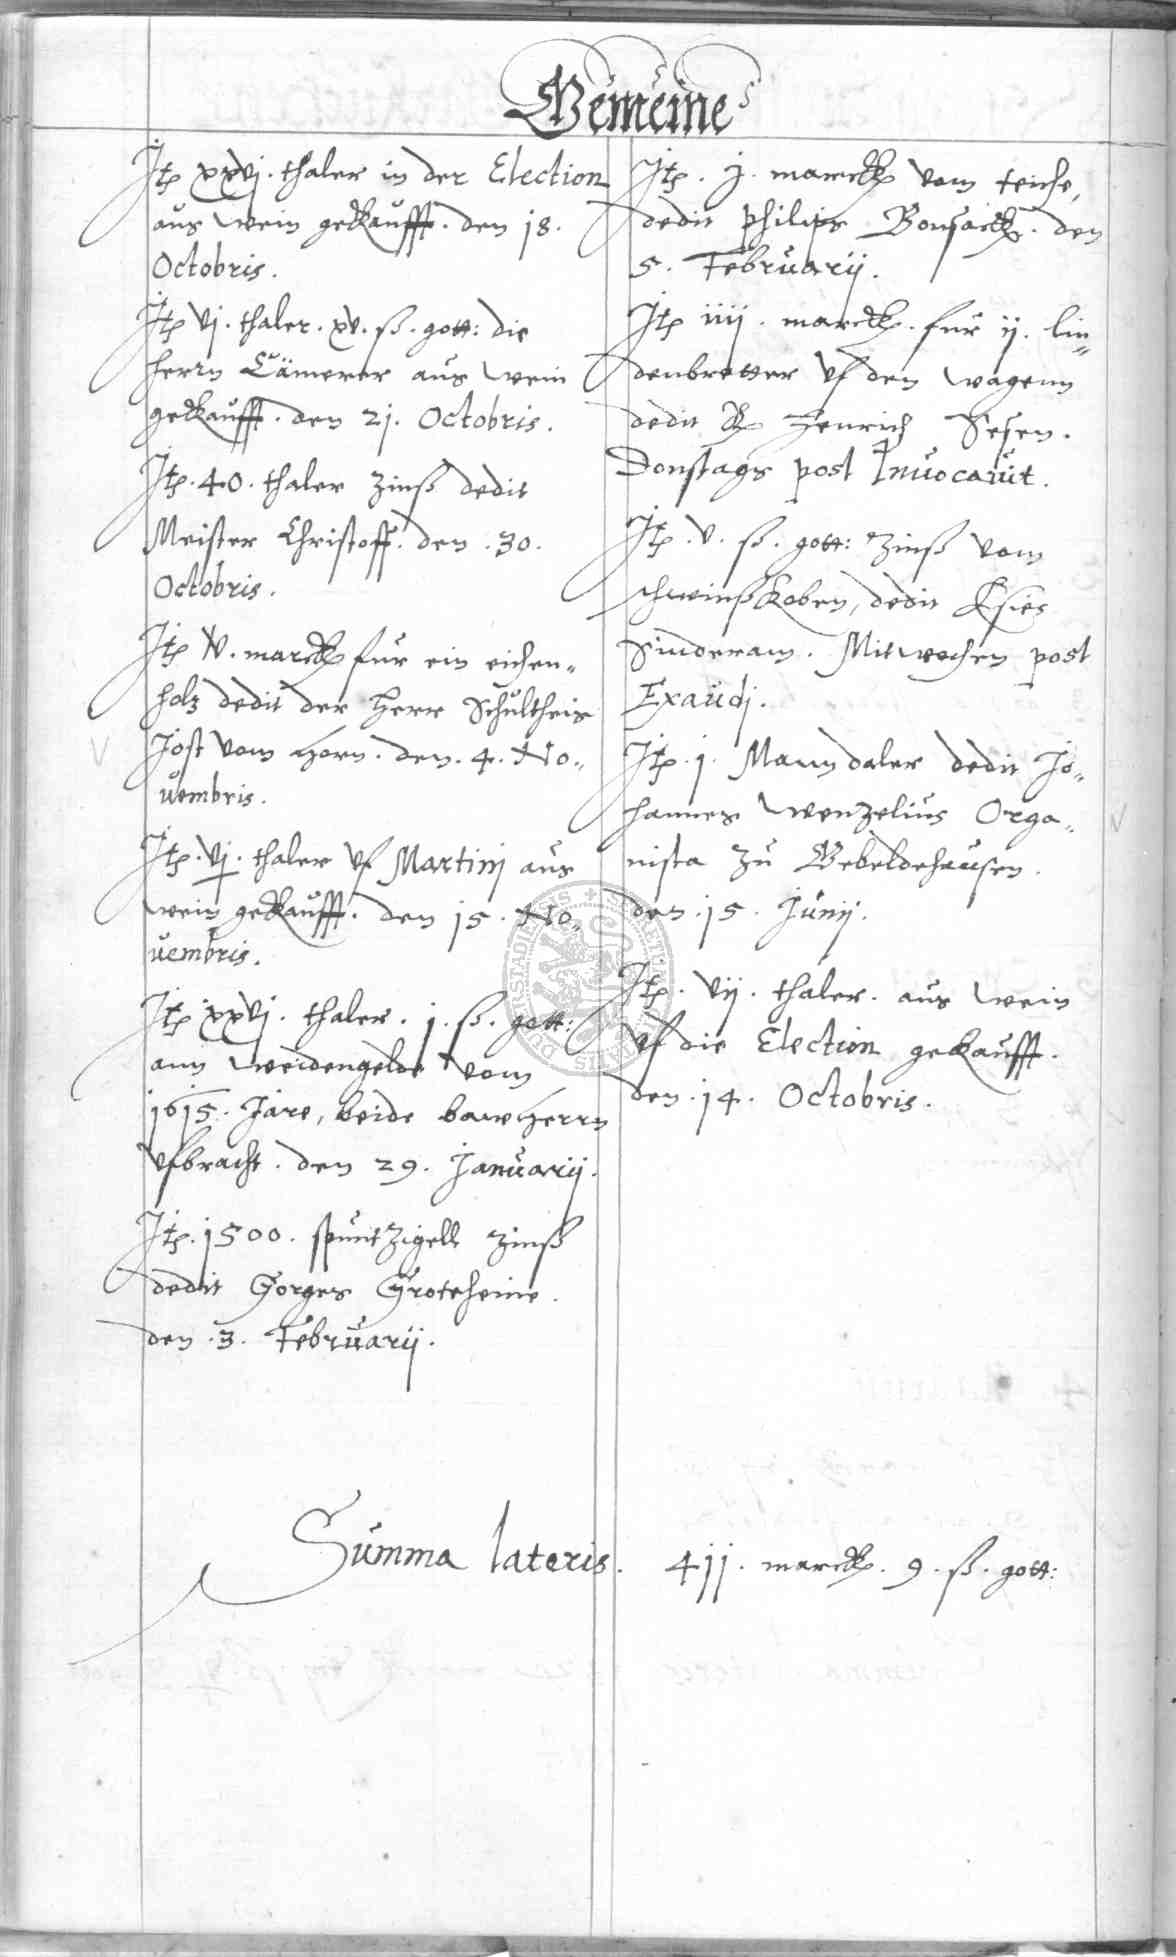 Gemeine
Itp xxvj. thaler in der Election
aus wein gekaufft. den 18.
Octobris.
Itp vj. thaler. xv. ß. gott: die
herrn Cämerer aus wein
gekaufft. den 21. Octobris.
Itp. 40. thaler Zinß dedit
Meister Christoff. den .30.
Octobris.
Itp v. marck fur ein eichen„
holz dedit der herr Schultheis
Jost vom Horn. den. 4. No„
uembris.
Itp. vj. thaler vf Martinj aus
wein gekaufft. den 15. No„
uembris.
Itp xxvj. thaler. j. ß. gott:
ann weidengelde vom
1615. Jare, beide bawherrn
vfbracht. den 29. Januarij.
Itp. 1500. spuntzigell Zinß
dedit Gorges Groteheine.
den .3. Februarij.
Itp. j. marck vom teiche,
dedit Philips Bonsack. den
5. Februarij.
Itp iiij. marck. fur ij. lin„
denbretter vf den wagenn
dedit Henrich Sesen.
Donstags post Inuocauit.
Itp. v. ß. gott: Zinß vom
schweinßkoben, dedit
Sinderam. Mitwochen post
Exaudj.
Itp. j. Mann daler dedit Jo„
hannes Wenzelius Orga„
nista zu Gebeldehausen.
den .15. Junij.
Itp. vij. thaler. aus wein
vf die Election gekaufft.
den .14. Octobris.
Summa lateris. 411. marck. 9. ß. gott: